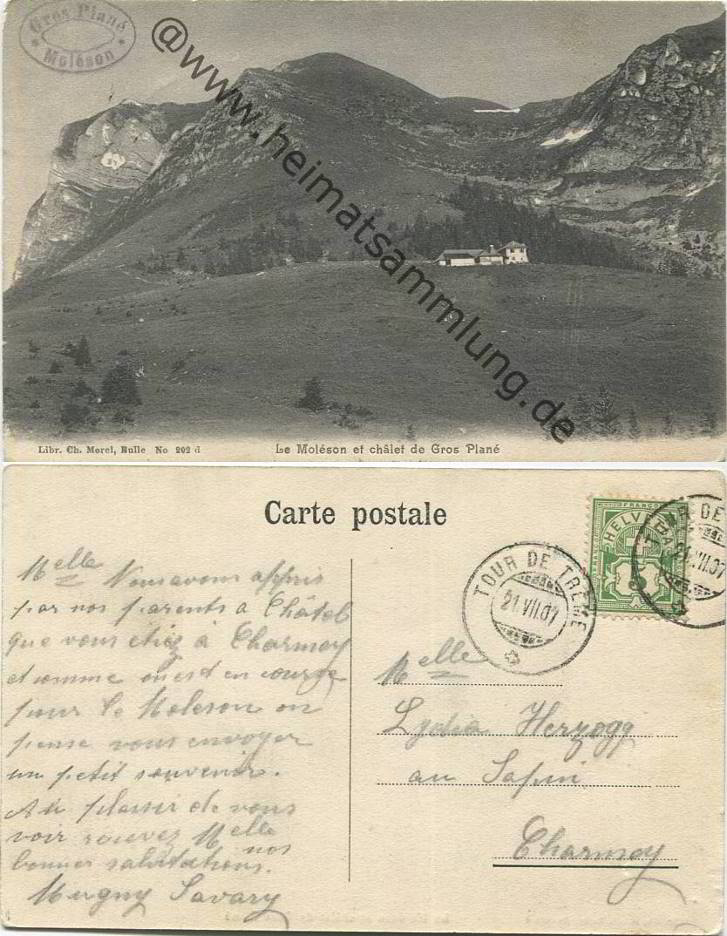 Gros Plané
Moléson
@www.heimatsammlung.de
Libr. Ch. Morel, Bulle No 202 d
Le Moléson et châlet de Gros Plané
Carte postale
HELVETIA
FRANCO
TOUR DE TRÊME
21.VII.07
TOUR DE
21.VII.07
Melle Nous avons appris
par nos parents à Châtel
que vous étiez à Charmey
et comme on est en course
pour le Moleson on
pense vous envoyer
un petit souvenir.
Au plaisir de vous
voir Melle
nos
bonnes salutations.
Mugny Savary
Melle
Lydia Herzogg
au Sapin
Charmey